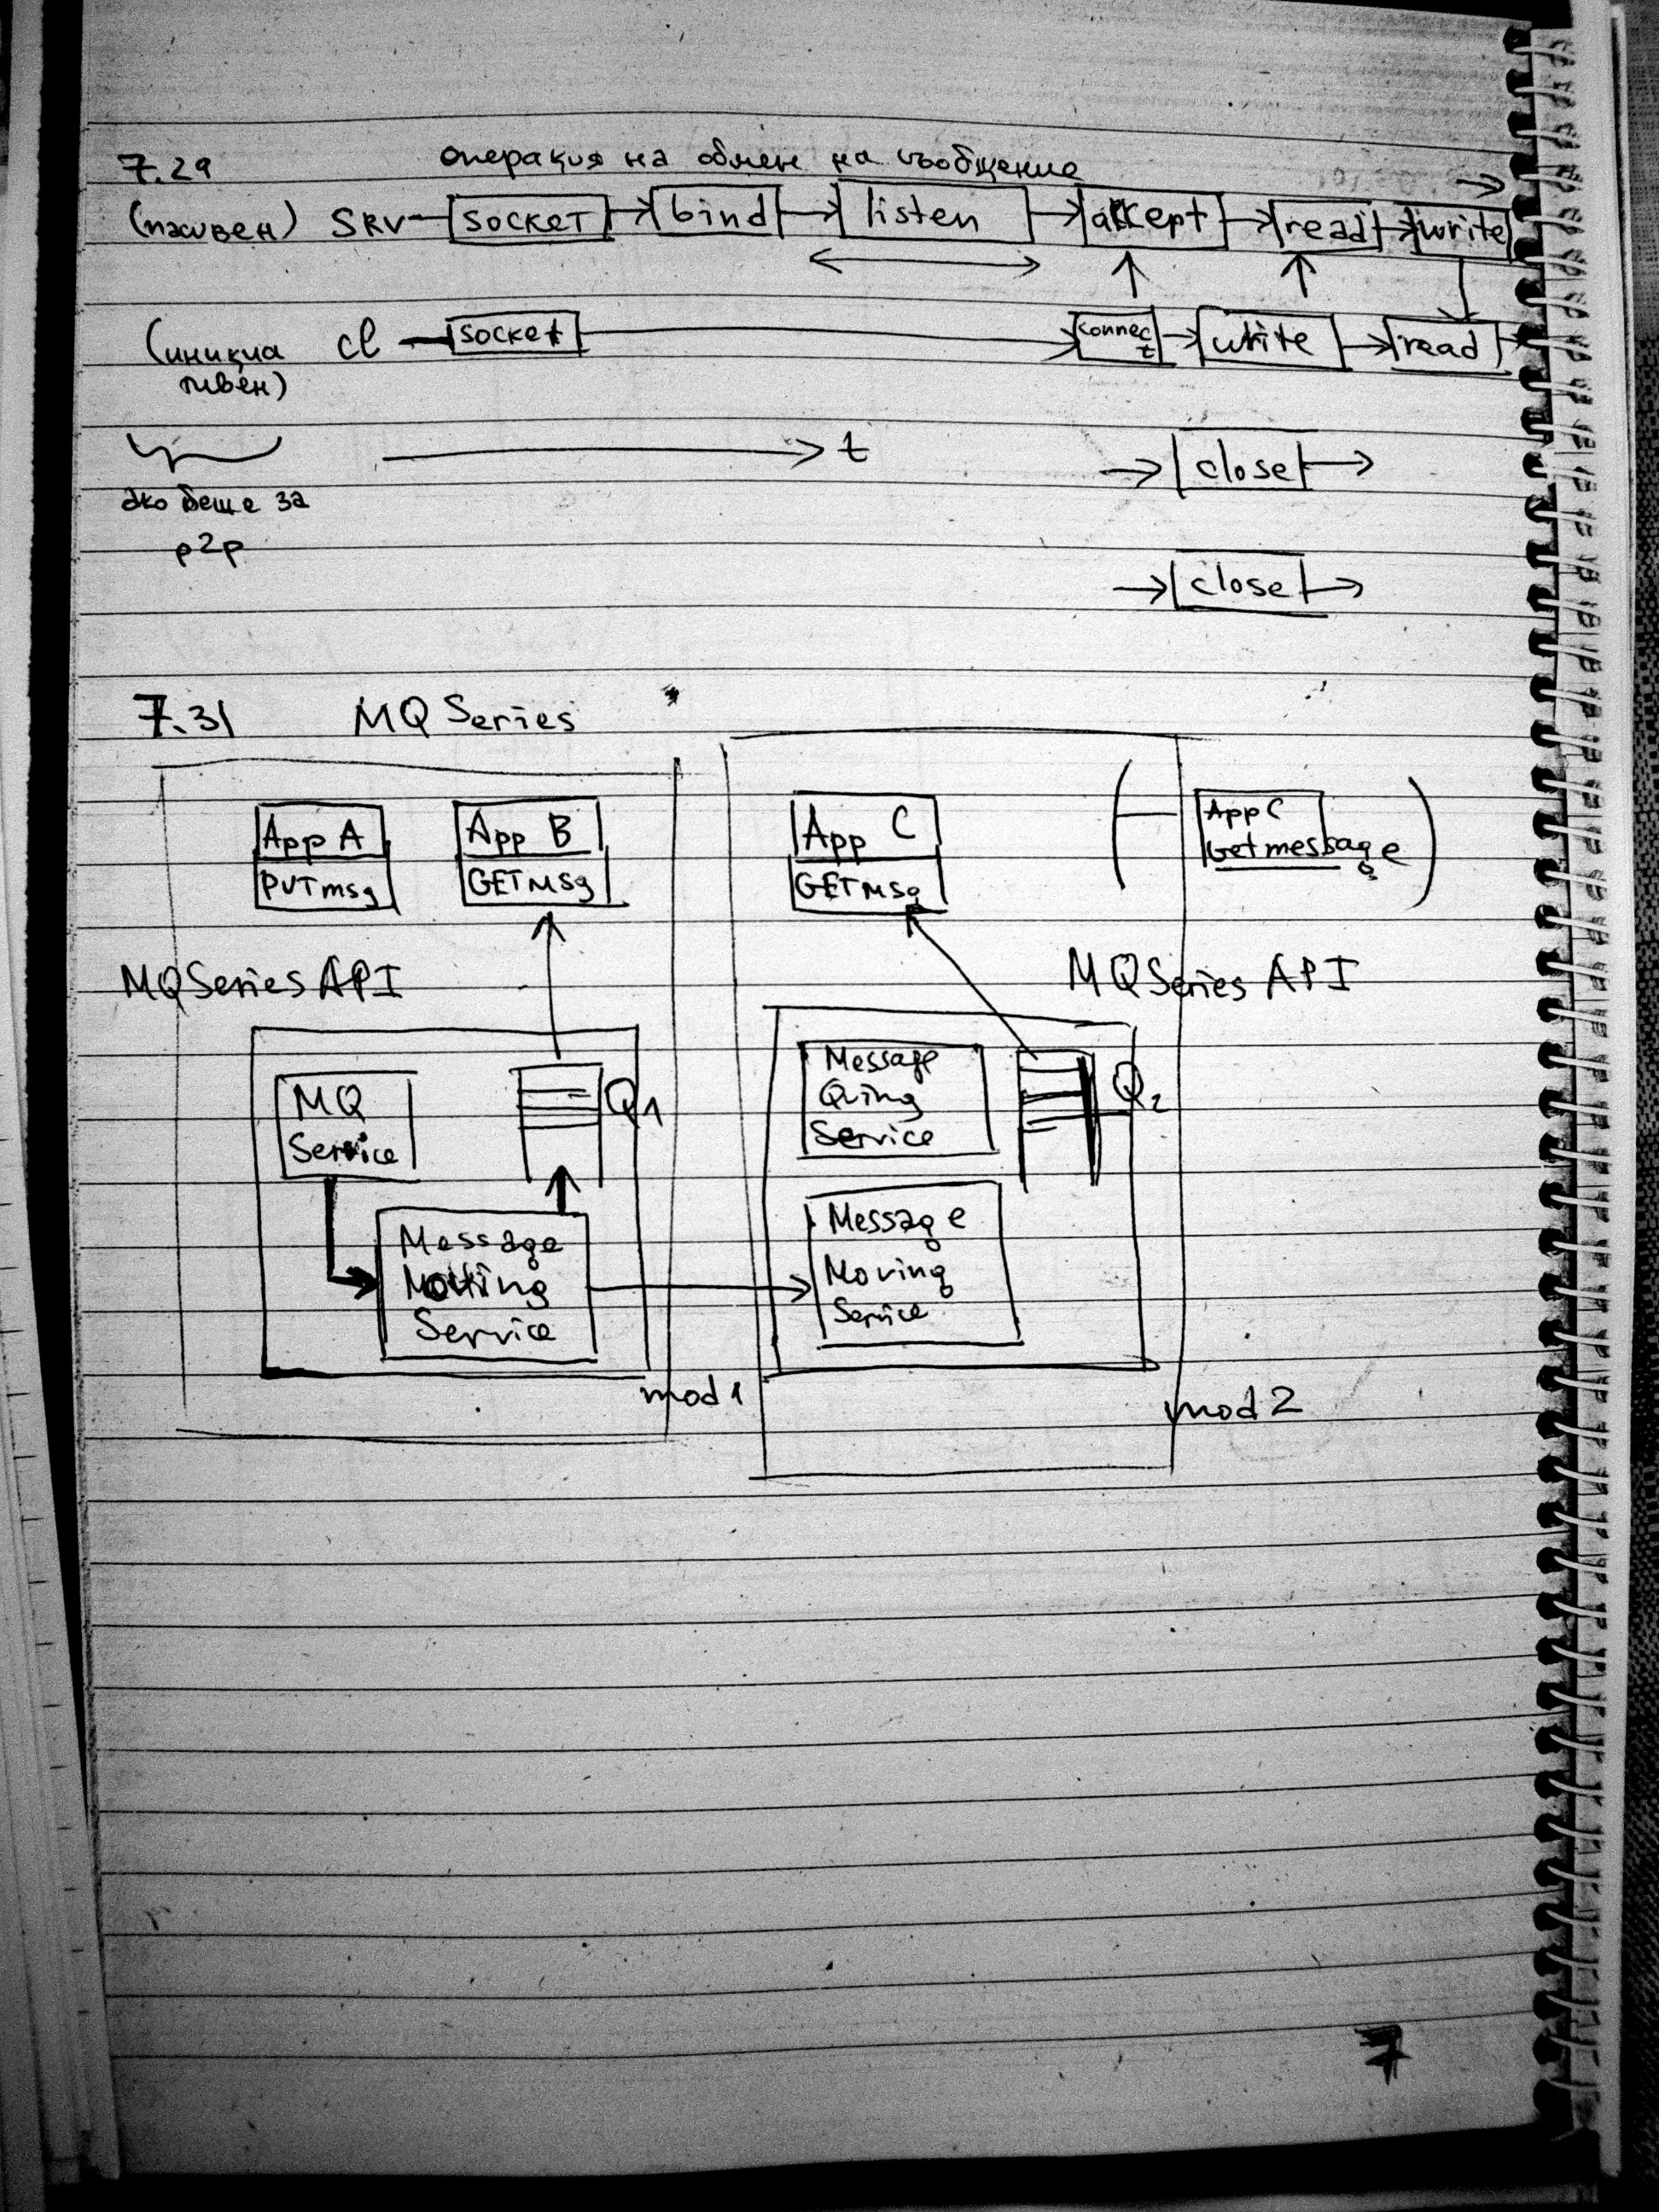 7.29 операция на обмен на съобщение
(пасивен) SRV socket bind listen accept read write
(инициа cl socket connec write read
тивен) t
t
close
ако беше за
p2p
close
7.31 MQ Series
App A App B App C App C
PUTmsg GETmsg GETmsg Getmessage
MQSeries API MQSeries API
MQ Q1 Message Q2
Service Qing
Service
Message Message
Moving Moving
Service Service
mod 1 mod 2
7